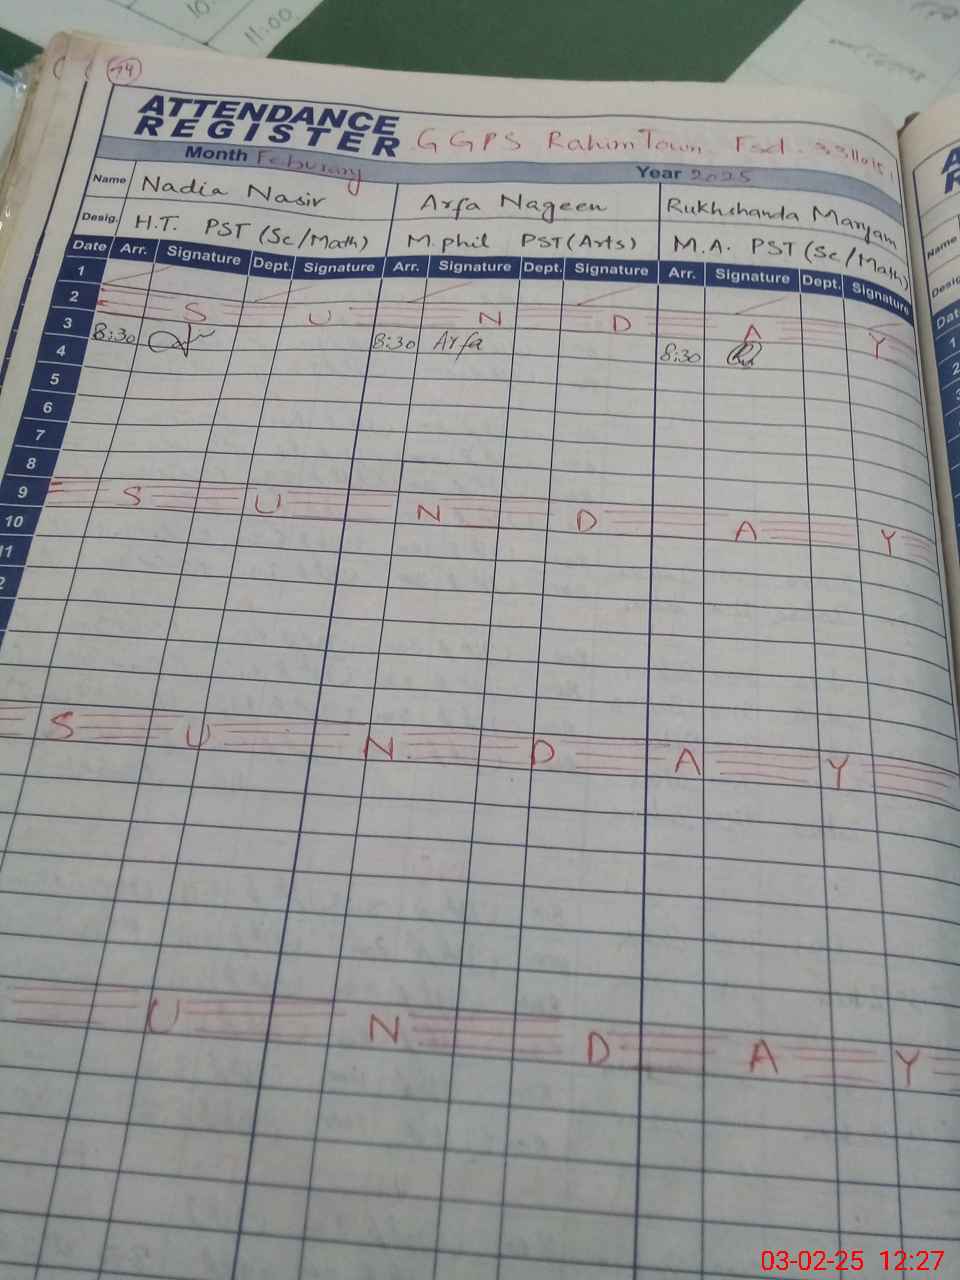 10.
11:00
74
ATTENDANCE
REGISTER G G P S Rahim Town. Fsd.
Month Feburary Year 2025
Name Nadia Nasir Arfa Nageen Rukhshanda Maryam
Desig. H.T. PST (Sc/Math) M.phil PST (Arts) M.A. PST (Sc/Math)
Date Arr. Signature Dept. Signature Arr. Signature Dept. Signature Arr. Signature Dept. Signature
1
2 S U N D A Y
3 8:30 8:30 Arfa 8:30
4
5
6
7
8
9 S U N D A Y
10
11
2
S U N D A Y
U N D A Y
Name
Desig
Dat
1
2
03-02-25 12:27